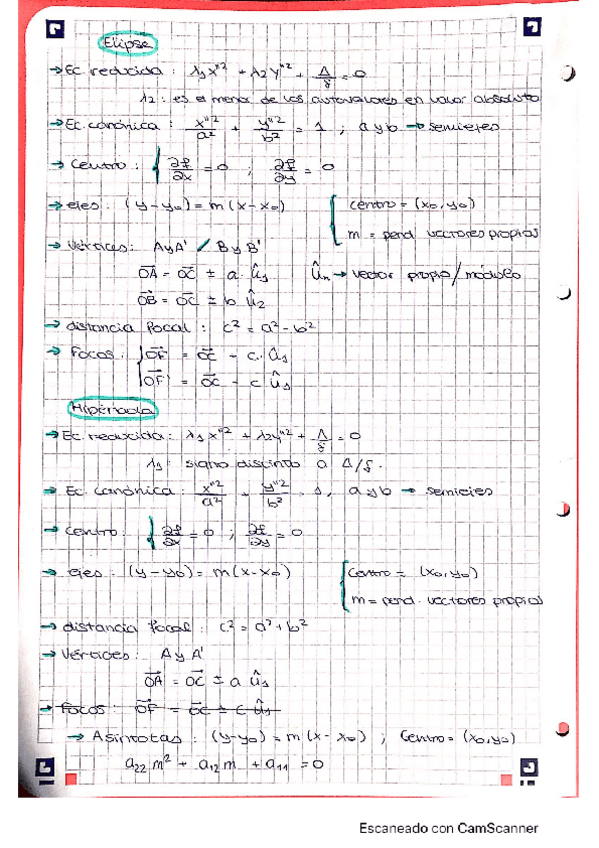 Elipse
→ Ec. reducida : λ₁x"² + λ₂y"² + Δ/δ = 0
λ₂ : es el menor de los autovalores en valor absoluto
→ Ec. canónica : x"²/a² + y"²/b² = 1 ; a y b → semiejes
→ Centro : { ∂f/∂x = 0 ; ∂f/∂y = 0
→ ejes : (y - y₀) = m (x - x₀) { centro = (x₀, y₀)
m = pend. vectores propios
→ Vértices : A y A' / B y B'
OA = OC ± a · û₁ ûₙ → vector propio / módulo
OB = OC ± b û₂
→ distancia focal : c² = a² - b²
→ Focos : { OF = OC - c · û₁
OF' = OC - c û₁
Hipérbola
→ Ec. reducida : λ₁x"² + λ₂y"² + Δ/δ = 0
λ₁ : signo distinto a Δ/δ.
→ Ec. canónica : x"²/a² y"²/b² 1, a y b → semiejes
→ Centro : { ∂f/∂x = 0 ; ∂f/∂y = 0
→ ejes : (y - y₀) = m (x - x₀) { Centro = (x₀, y₀)
m = pend. vectores propios
→ distancia focal : c² = a² + b²
→ Vértices : A y A'
OA = OC ± a û₁
→ Focos : OF = OC ± c û₁
→ Asíntotas : (y - y₀) = m (x - x₀) ; Centro = (x₀, y₀)
a₂₂ m² + a₁₂ m + a₁₁ = 0
Escaneado con CamScanner